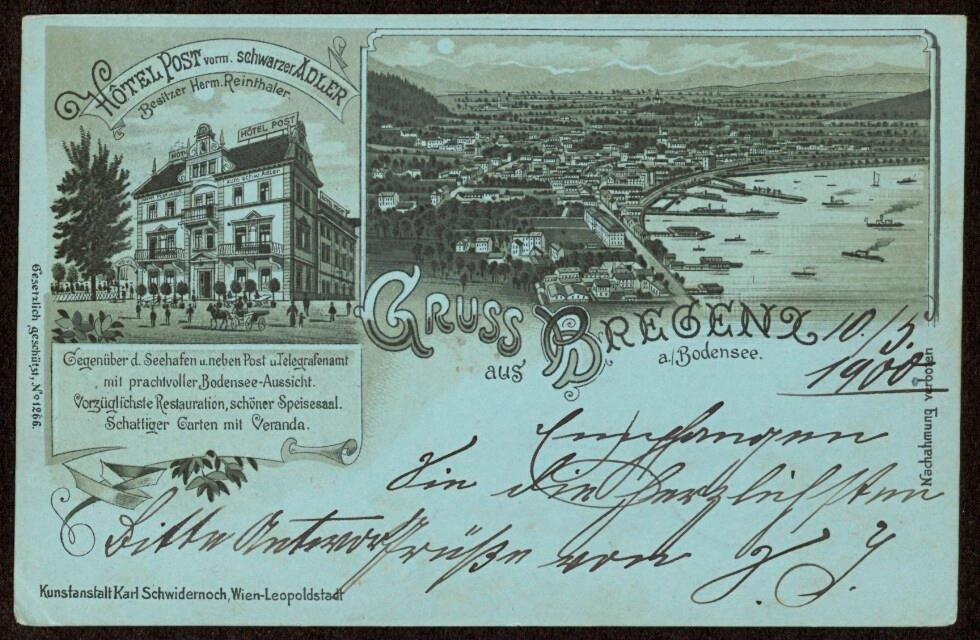 HÔTEL POST vorm. schwarzer ADLER
Besitzer Herm. Reinthaler.
HÔTEL POST
Gegenüber d. Seehafen u. neben Post u. Telegrafenamt
mit prachtvoller Bodensee-Aussicht.
Vorzüglichste Restauration, schöner Speisesaal.
Schattiger Garten mit Veranda.
GRUSS
aus BREGENZ
a./Bodensee.
10/5.
1900
Empfangen
Sie die herzlichsten
Grüße von J. J.
Bitte Antwort
Gesetzlich geschützt. No 1266.
Nachahmung verboten
Kunstanstalt Karl Schwidernoch, Wien-Leopoldstadt